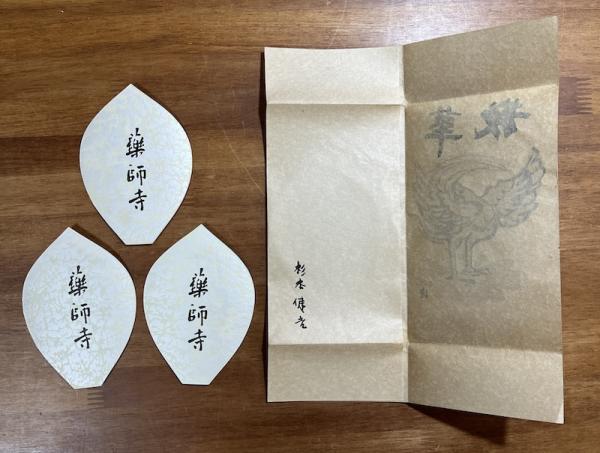 藥師寺
藥師寺
藥師寺
散華
杉本健吉